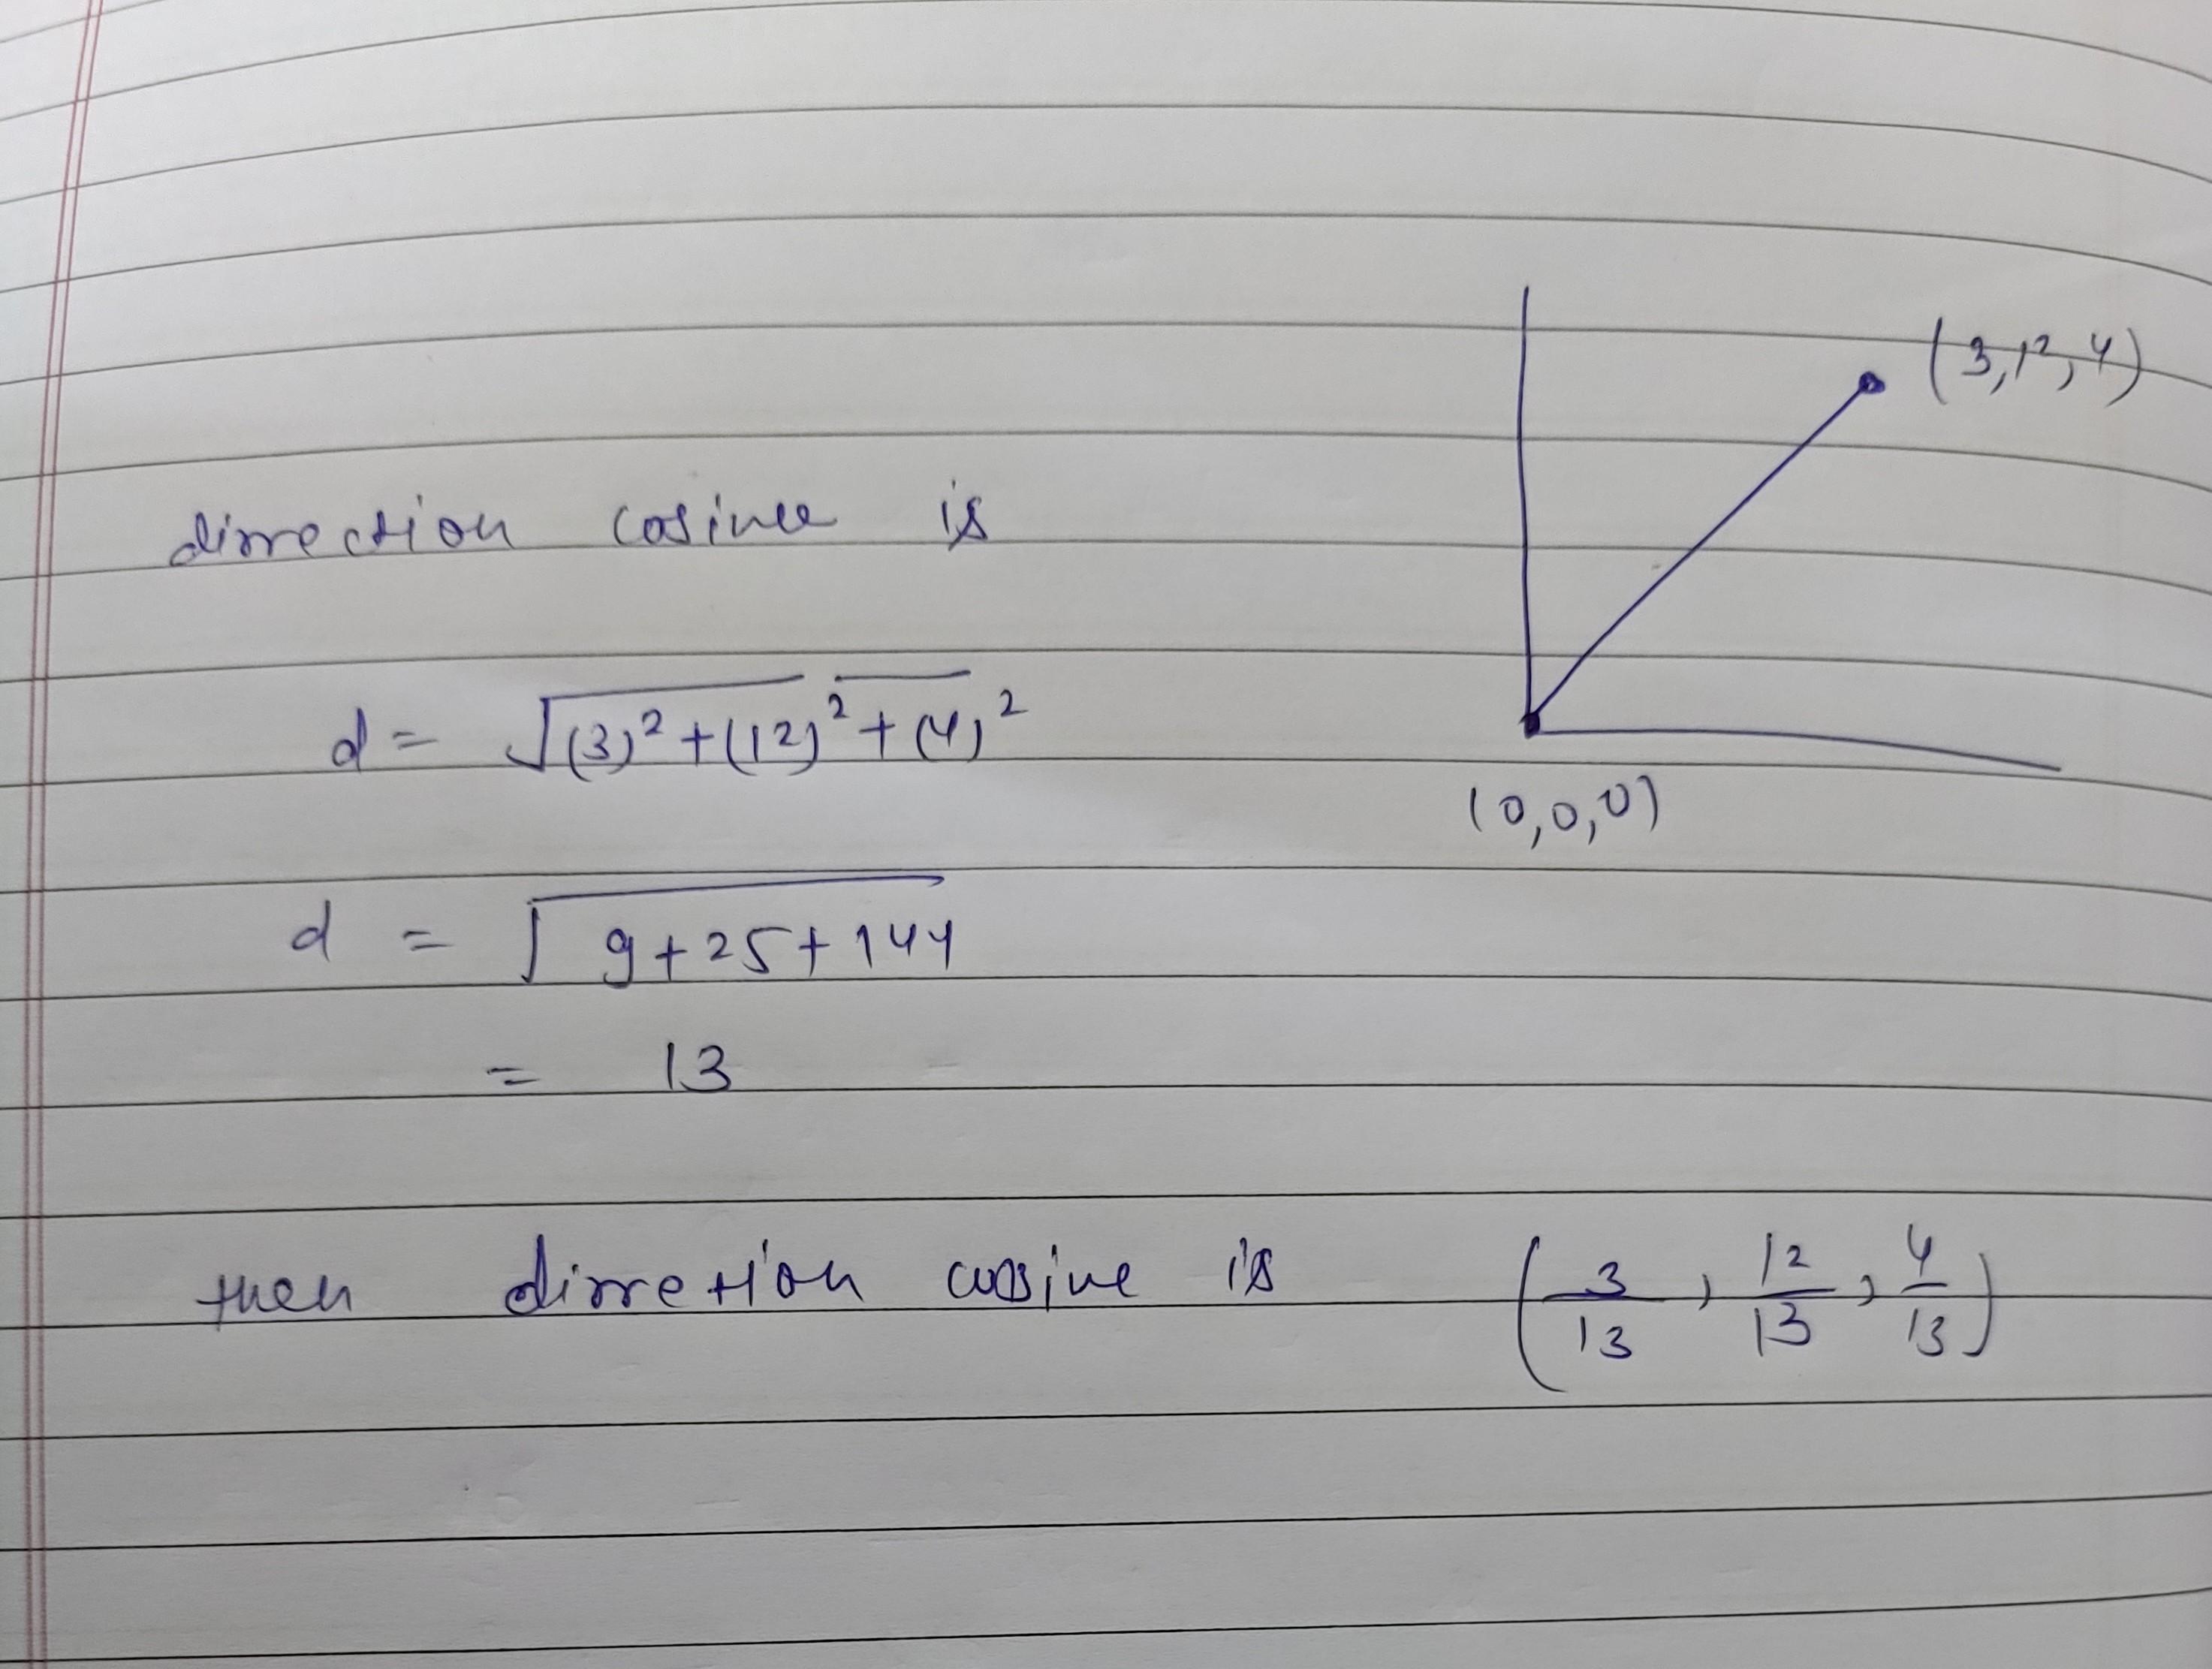 (3,12,4)
dirrection cosinee is
d = √(3)² + (12)² + (4)²
(0,0,0)
d = √9+25+144
= 13
then dirretion cosine is (3/13, 12/13, 4/13)